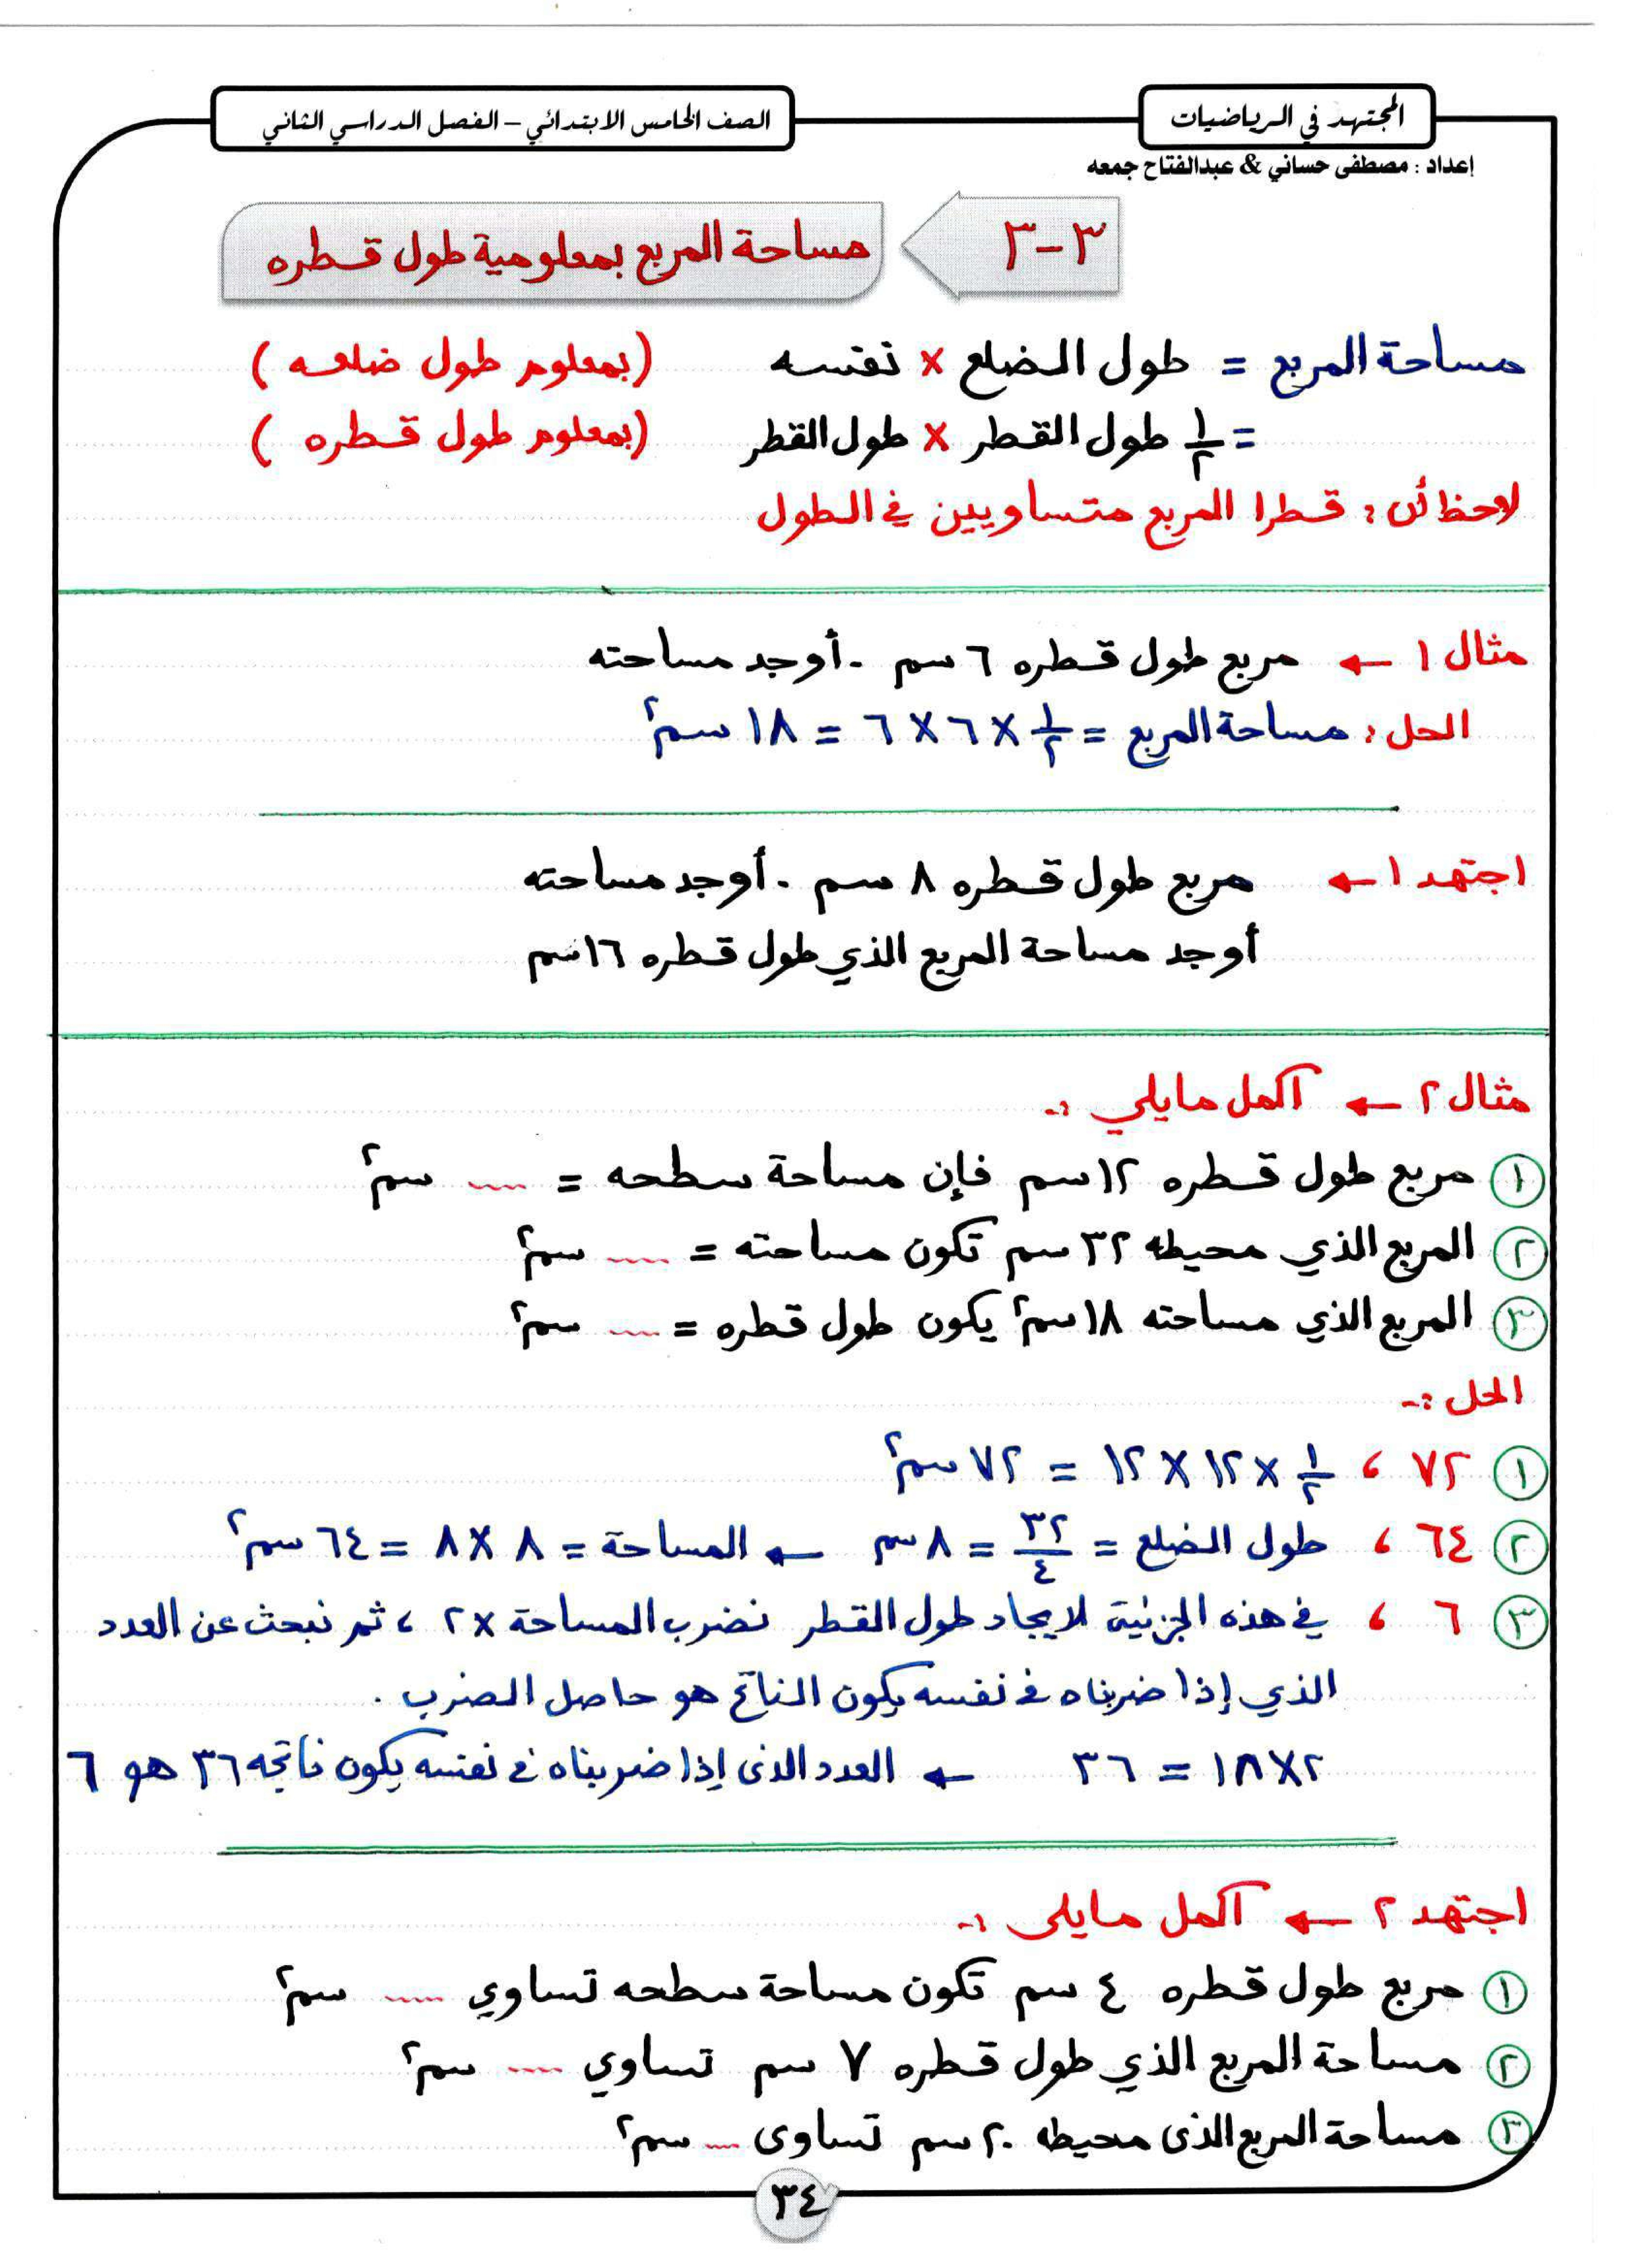 المجتهد في الرياضيات
الصف الخامس الابتدائي – الفصل الدراسي الثاني
إعداد : مصطفى حساني & عبدالفتاح جمعه
٣-٣
مساحة المربع بمعلومية طول قطره
مساحة المربع = طول الضلع × نفسه (بمعلوم طول ضلعه)
= ١/٢ طول القطر × طول القطر (بمعلوم طول قطره)
لاحظ أن : قطرا المربع متساويين في الطول
مثال ١ ← مربع طول قطره ٦ سم . أوجد مساحته
الحل : مساحة المربع = ١/٢ × ٦ × ٦ = ١٨ سم٢
اجتهد ١ ← مربع طول قطره ٨ سم . أوجد مساحته
أوجد مساحة المربع الذي طول قطره ١٦ سم
مثال ٢ ← أكمل ما يلي :-
١ مربع طول قطره ١٢ سم فإن مساحة سطحه = ..... سم٢
٢ المربع الذي محيطه ٣٢ سم تكون مساحته = ..... سم٢
٣ المربع الذي مساحته ١٨ سم٢ يكون طول قطره = ..... سم٢
الحل :-
١ ٧٢ ، ١/٢ × ١٢ × ١٢ = ٧٢ سم٢
٢ ٦٤ ، طول الضلع = ٣٢/٤ = ٨ سم ← المساحة = ٨ × ٨ = ٦٤ سم٢
٣ ٦ ، في هذه الجزئية لايجاد طول القطر نضرب المساحة × ٢ ، ثم نبحث عن العدد
الذي إذا ضربناه في نفسه يكون الناتج هو حاصل الضرب .
٢ × ١٨ = ٣٦ ← العدد الذى إذا ضربناه في نفسه يكون ناتجه ٣٦ هو ٦
اجتهد ٢ ← أكمل ما يلى :-
١ مربع طول قطره ٤ سم تكون مساحة سطحه تساوي ..... سم٢
٢ مساحة المربع الذي طول قطره ٧ سم تساوي ..... سم٢
٣ مساحة المربع الذى محيطه ٢٠ سم تساوى .... سم٢
٣٤